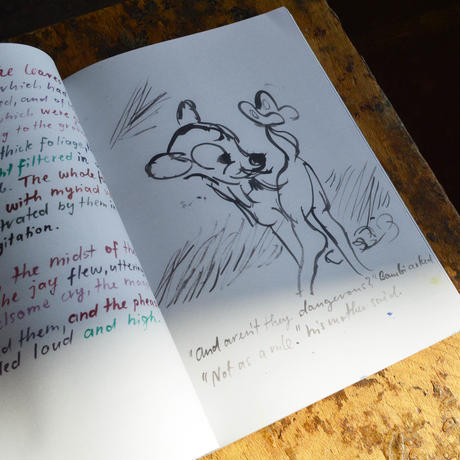 he leaves
which had
ed, and of
which were
g to the gr
thick foliage,
ht filtered in
The whole f
with myriad
trated by them i
gitation.
the midst of th
he jay flew, uttering
lsome cry, the ma
d them, and the phea
led loud and high.
"And aren't they dangerous?" Bambi asked
"Not as a rule." his mother said.